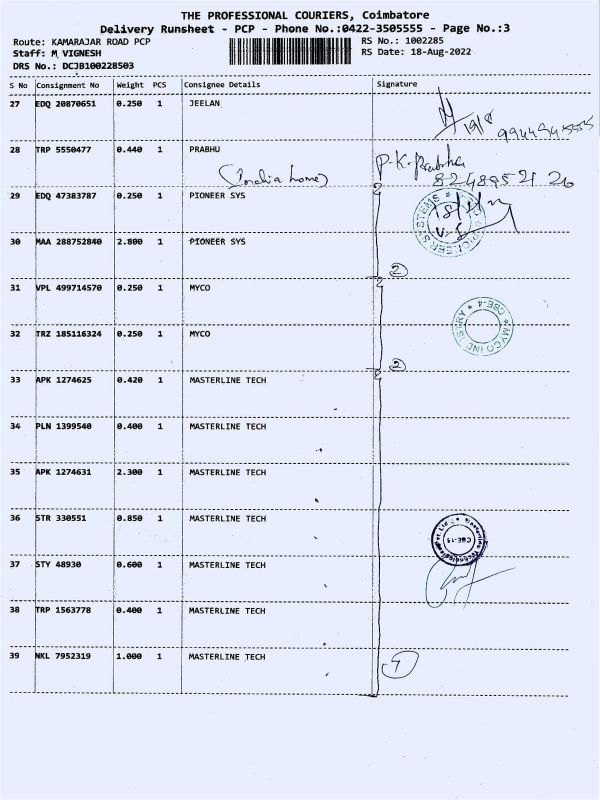 THE PROFESSIONAL COURIERS, Coimbatore
Delivery Runsheet - PCP - Phone No.:0422-3505555 - Page No.:3
Route: KAMARAJAR ROAD PCP
RS No.: 1002285
Staff: M VIGNESH
RS Date: 18-Aug-2022
DRS No.: DCJB100228503
S No Consignment No Weight PCS Consignee Details Signature
27 EDQ 20870651 0.250 1 JEELAN
19/8
28 TRP 5550477 0.440 1 PRABHU P-K-Prabha
29 EDQ 47383787 0.250 1 PIONEER SYS
30 MAA 288752840 2.800 1 PIONEER SYS
2
31 VPL 499714570 0.250 1 MYCO
MYCO INDUSTRY * CBE-4 *
32 TRZ 185116324 0.250 1 MYCO
2
33 APK 1274625 0.420 1 MASTERLINE TECH
34 PLN 1399540 0.400 1 MASTERLINE TECH
35 APK 1274631 2.300 1 MASTERLINE TECH
36 STR 330551 0.850 1 MASTERLINE TECH
Masterline Technologies Pvt. Ltd. *
CBE-15
37 STY 48930 0.600 1 MASTERLINE TECH
38 TRP 1563778 0.400 1 MASTERLINE TECH
39 NKL 7952319 1.000 1 MASTERLINE TECH
7